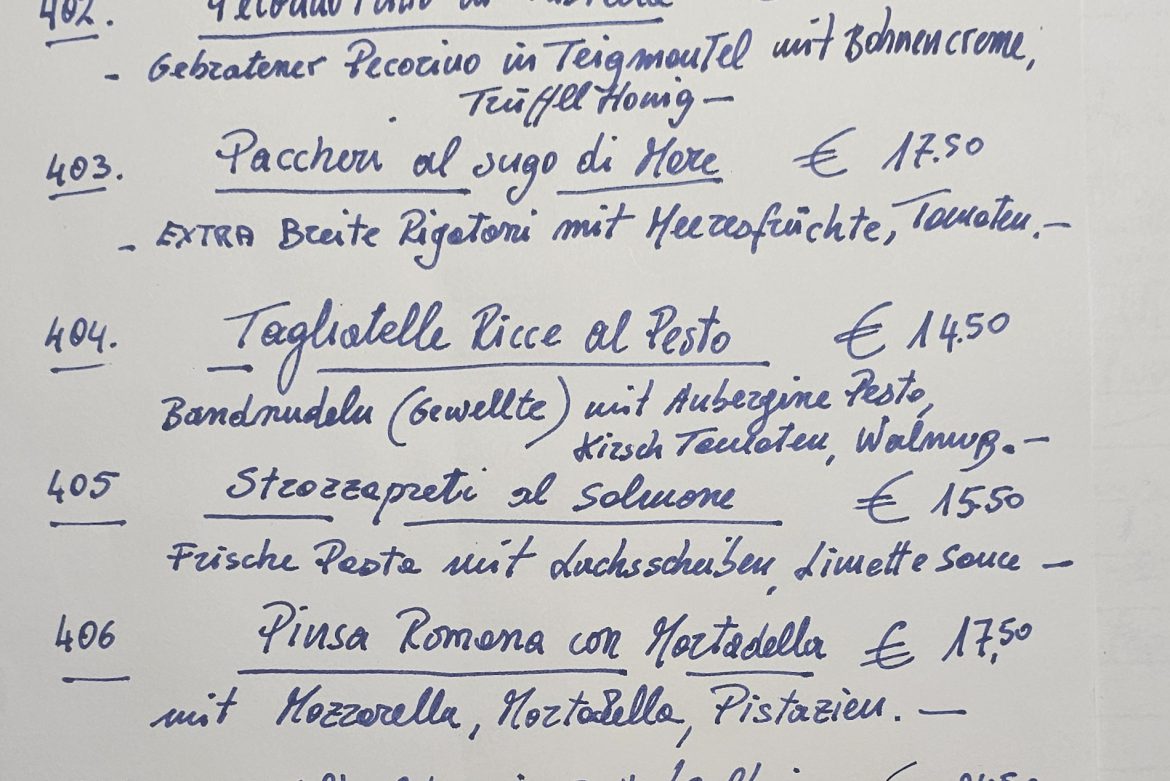 402.
- Gebratener Pecorino in Teigmantel mit Bohnencreme,
Trüffel Honig —
403. Paccheri al sugo di Mare € 17.50
- EXTRA Breite Rigatoni mit Meeresfrüchte, Tomaten. —
404. Tagliatelle Ricce al Pesto € 14.50
Bandnudeln (Gewellte) mit Aubergine Pesto,
Kirsch Tomaten, Walnuß. —
405 Strozzapreti al Salmone € 15.50
Frische Pasta mit Lachsscheiben, Limette Sauce —
406 Pinsa Romana con Mortadella € 17,50
mit Mozzarella, Mortadella, Pistazien. —